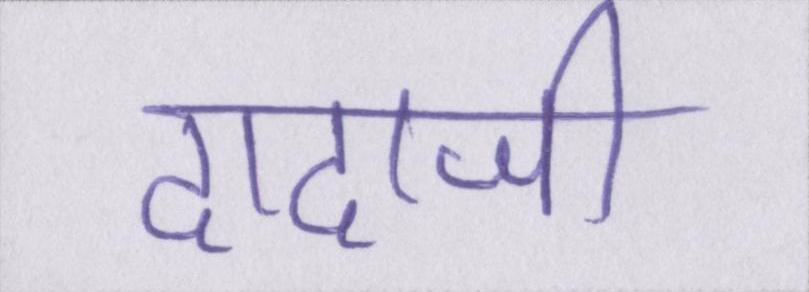 दादाजी